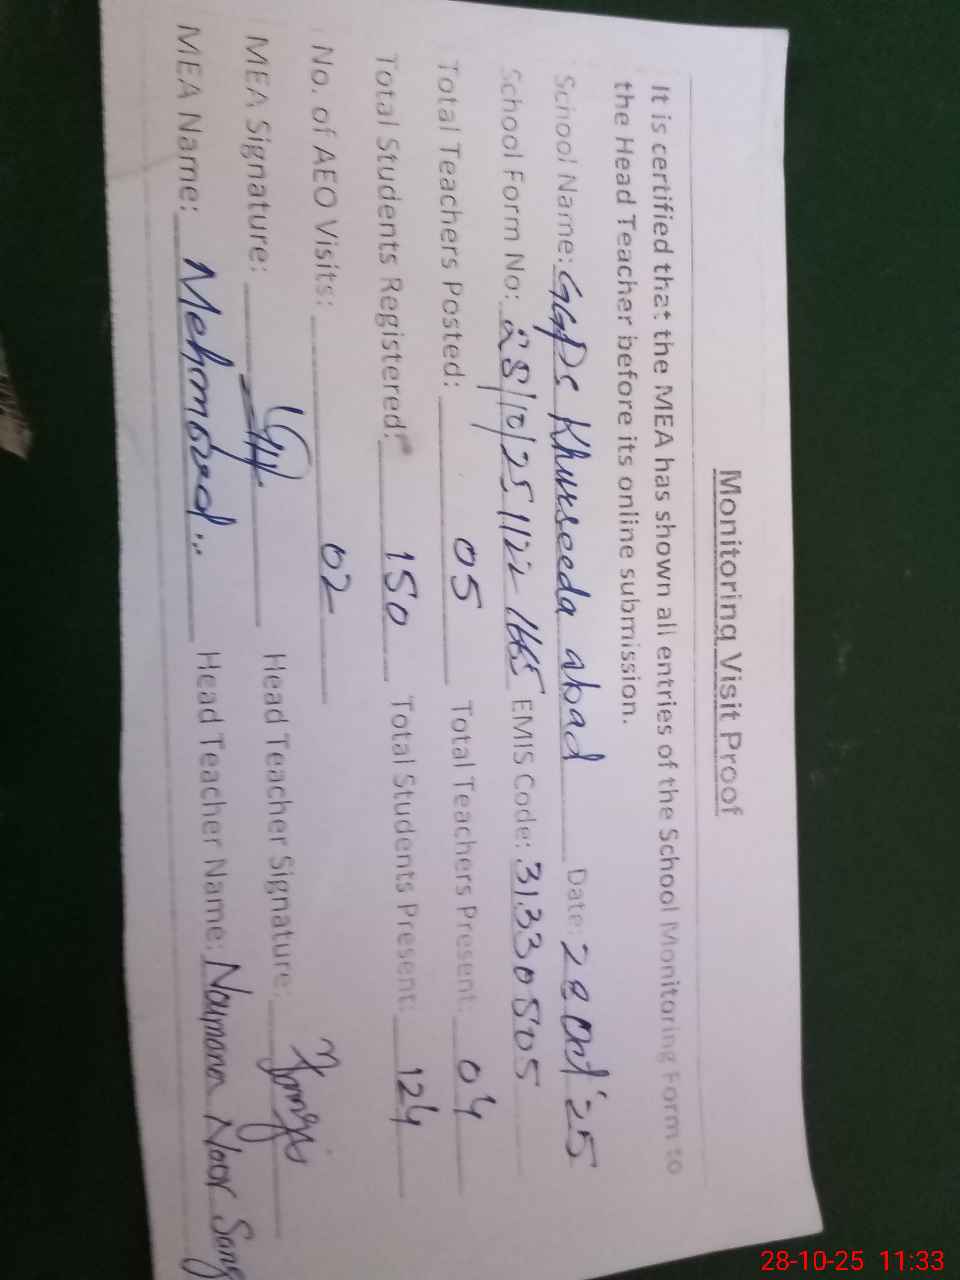 Monitoring Visit Proof
It is certified that the MEA has shown all entries of the School Monitoring Form to
the Head Teacher before its online submission.
School Name: GGPS Khurseeda abad Date: 28 Oct '25
School Form No: 28/10/25 1122 1665 EMIS Code: 31330505
Total Teachers Posted: 05 Total Teachers Present: 04
Total Students Registered: 150 Total Students Present: 124
No. of AEO Visits: 02
MEA Signature: Head Teacher Signature:
MEA Name: Mehmood Head Teacher Name: Noor
28-10-25 11:33